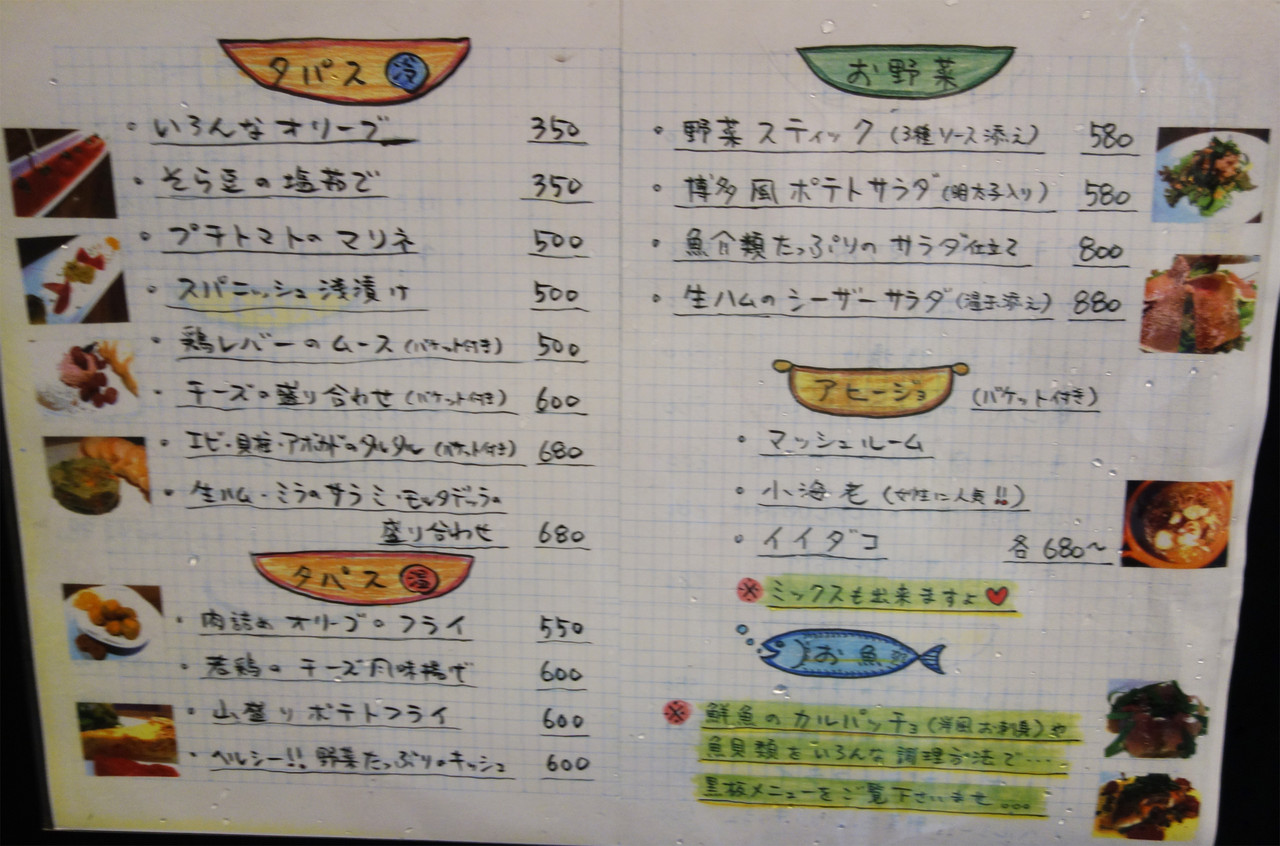 タパス 冷
・いろんなオリーブ 350
・そら豆の塩茹で 350
・プチトマトのマリネ 500
・スパニッシュ浅漬け 500
・鶏レバーのムース(バケット付き) 500
・チーズの盛り合わせ(バケット付き) 600
・エビ・貝柱・アボカドのタルタル(バケット付き) 680
・生ハム・ミラのサラミ・モルタデッラの
盛り合わせ 680
タパス 温
・肉詰めオリーブのフライ 550
・若鶏のチーズ風味揚げ 600
・山盛りポテトフライ 600
・ヘルシー!!野菜たっぷりのキッシュ 600
お野菜
・野菜スティック(3種ソース添え) 580
・博多風ポテトサラダ(明太子入り) 580
・魚介類たっぷりのサラダ仕立て 800
・生ハムのシーザーサラダ(温玉添え) 880
アヒージョ (バケット付き)
・マッシュルーム
・小海老(女性に人気!!)
・イイダコ 各680〜
※ミックスも出来ますよ♥
お魚
※鮮魚のカルパッチョ(洋風お刺身)や
魚貝類をいろんな調理方法で・・・・
黒板メニューをご覧下さいませ...